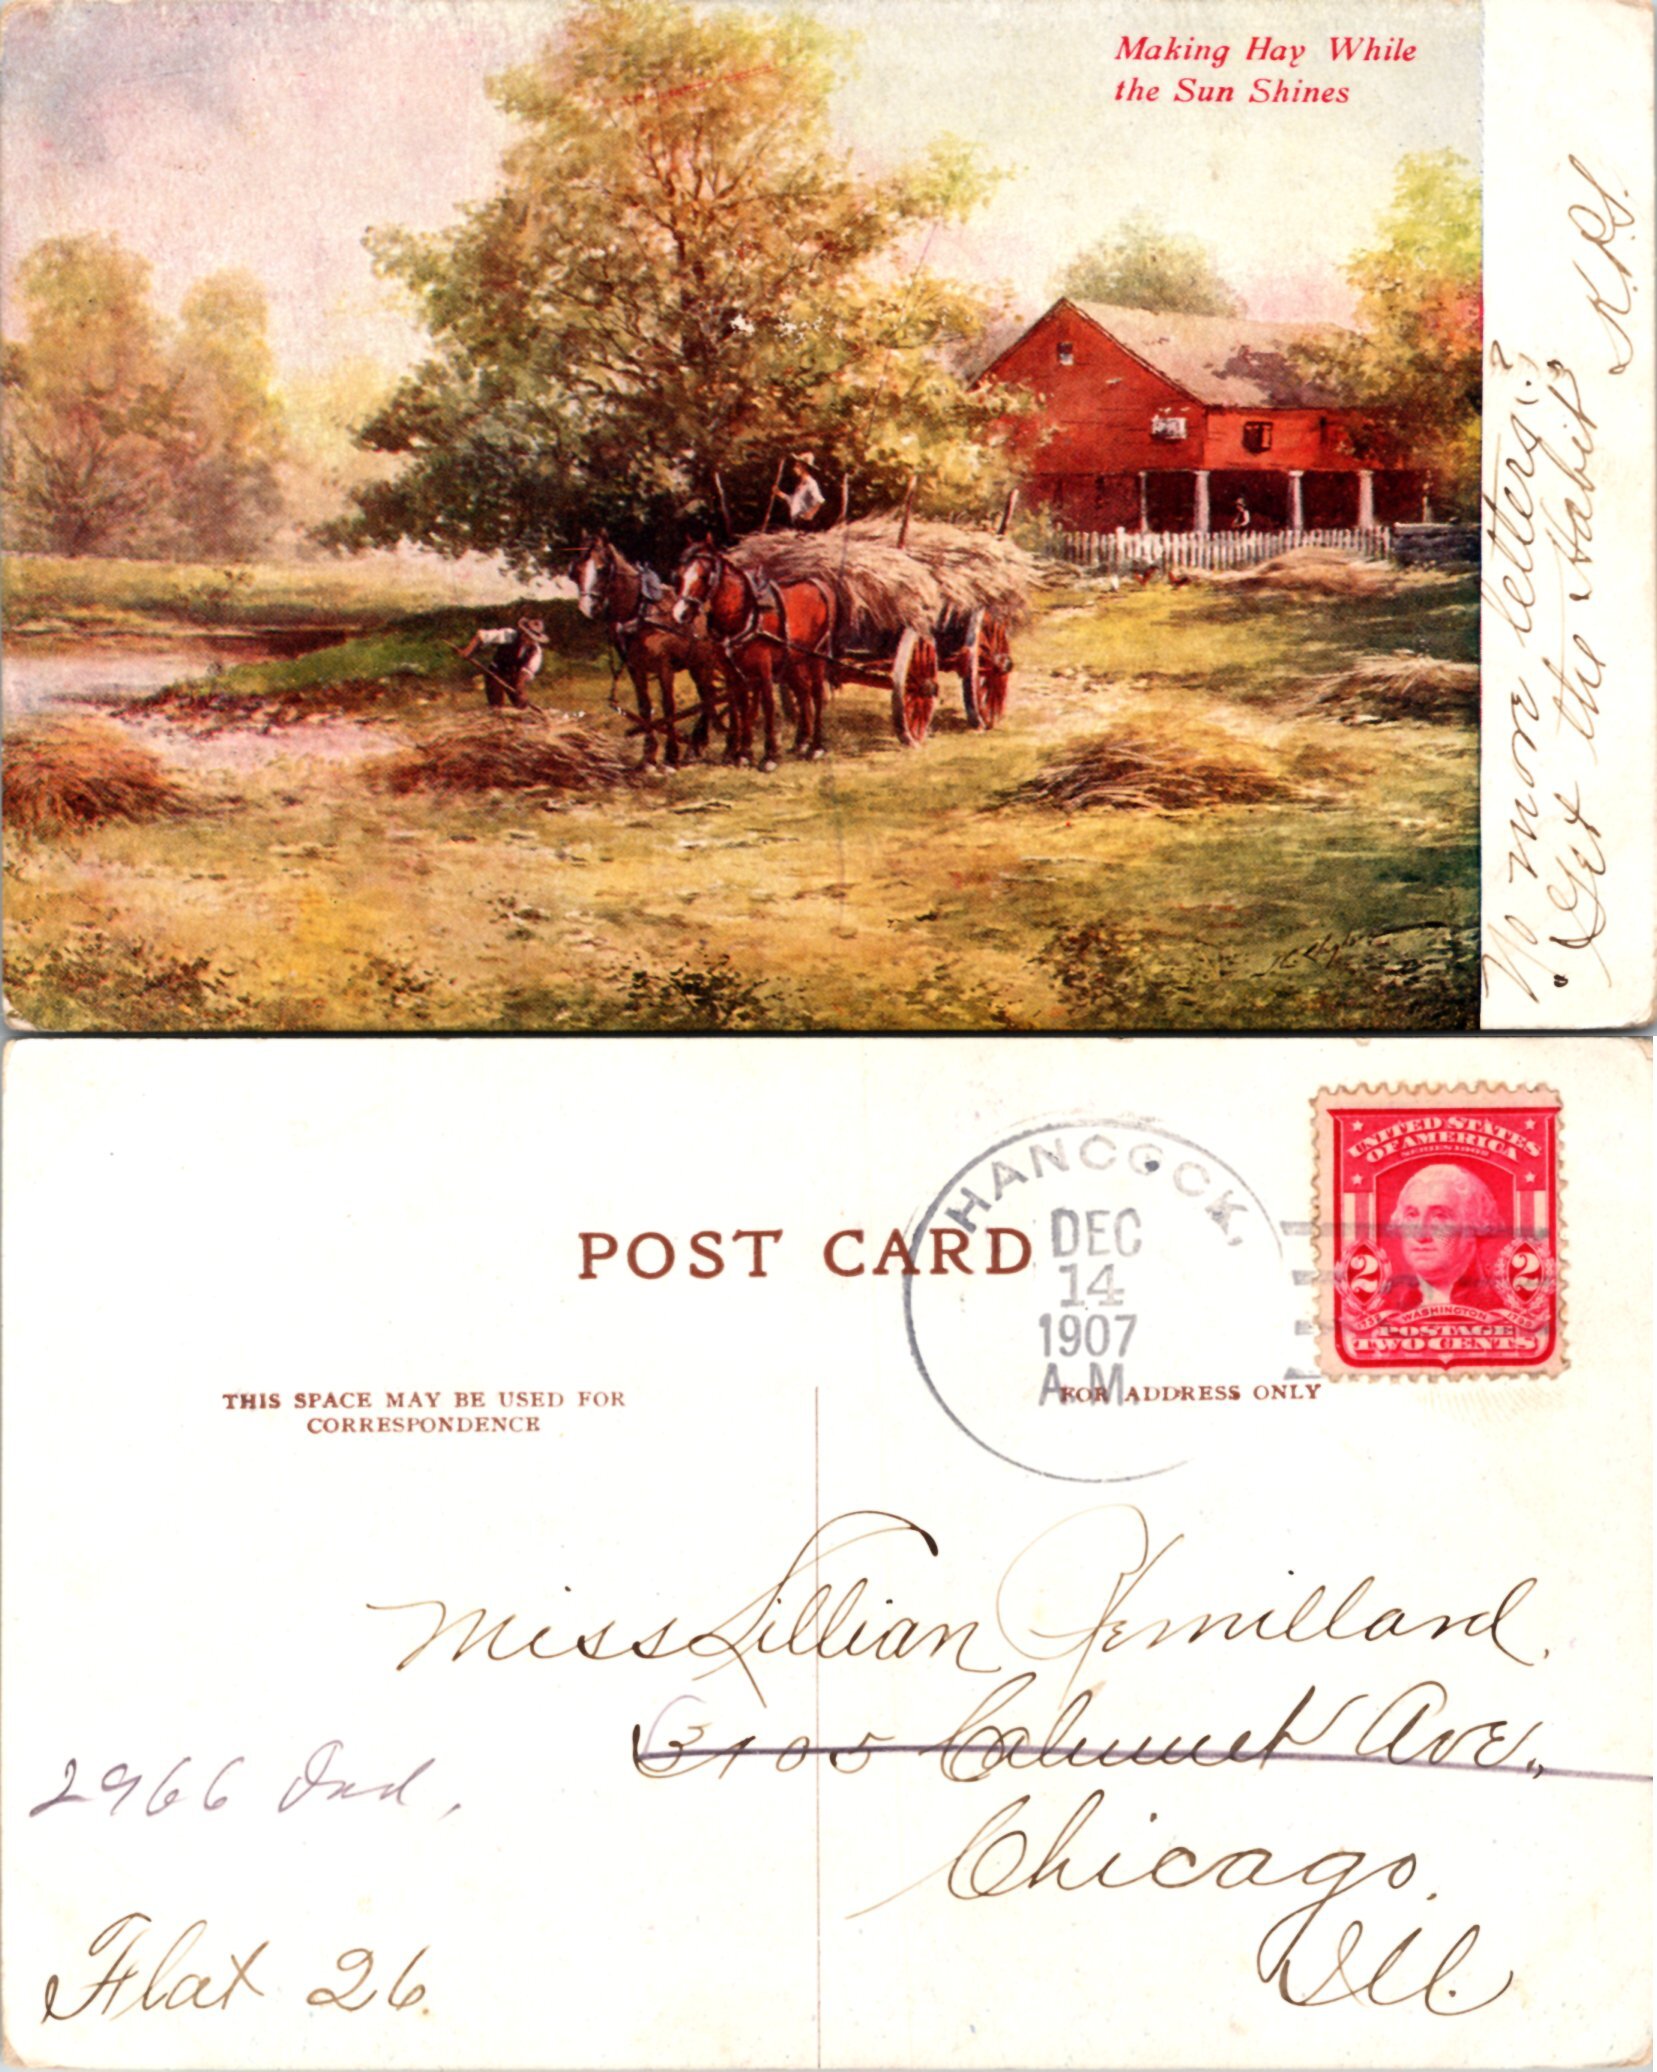 Making Hay While
the Sun Shines
No more letters?
"Get the Habit"
K.P.S.
POST CARD
HANCOCK,
DEC
14
1907
A.M.
UNITED STATES
OF AMERICA
SERIES 1902
2 2
1732 WASHINGTON 1799
POSTAGE
TWO CENTS
THIS SPACE MAY BE USED FOR
CORRESPONDENCE
FOR ADDRESS ONLY
Miss Lillian Remillard.
3105 Calumet Ave.,
2966 Ind.
Chicago.
Flat 26.
Ill.